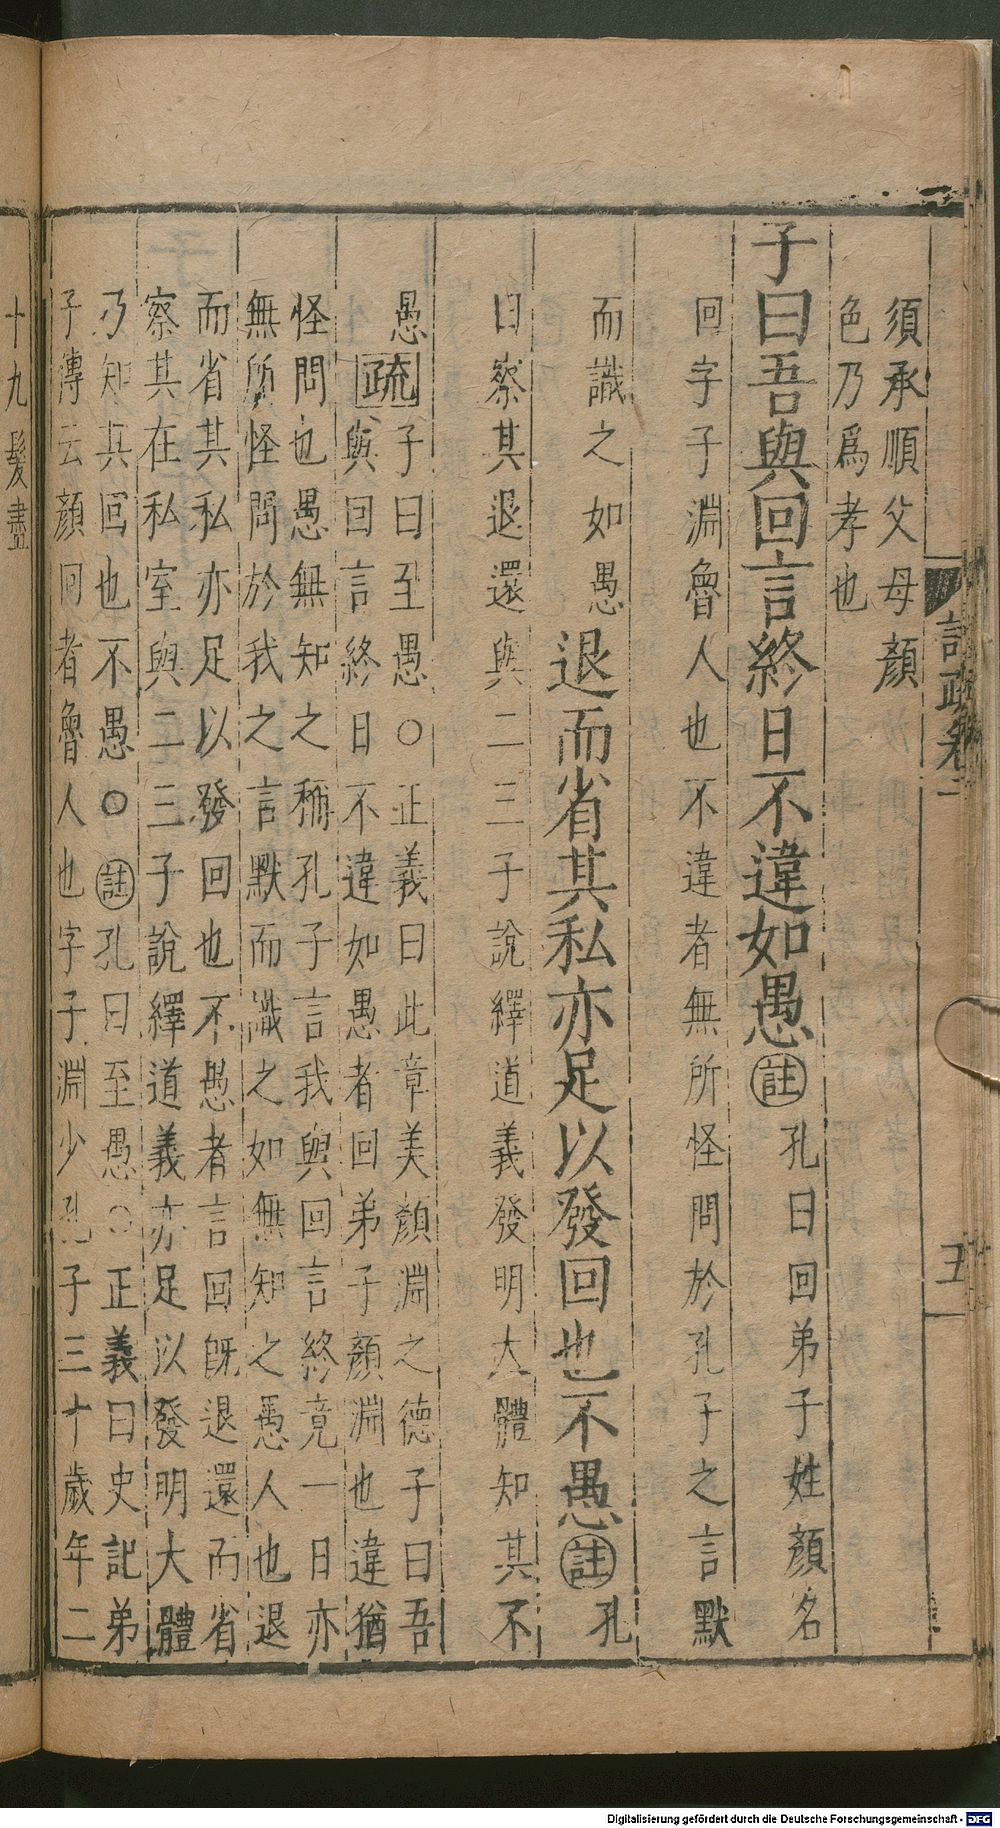 須承順父母顏
色乃爲孝也
子曰吾與回言終日不違如愚註孔曰回弟子姓顏名
回字子淵魯人也不違者無所怪問於孔子之言默
而識之如愚退而省其私亦足以發回也不愚註孔
曰察其退還與二三子說繹道義發明大體知其不
愚疏子曰至愚○正義曰此章美顏淵之德子曰吾
與回言終日不違如愚者回弟子顏淵也違猶
怪問也愚無知之稱孔子言我與回言終竟一日亦
無所怪問於我之言默而識之如無知之愚人也退
而省其私亦足以發回也不愚者言回旣退還而省
察其在私室與二三子說繹道義亦足以發明大體
乃知其回也不愚○註孔曰至愚○正義曰史記弟
子傳云顏回者魯人也字子淵少孔子三十歲年二
十九髮盡
五
Digitalisierung gefördert durch die Deutsche Forschungsgemeinschaft - DFG